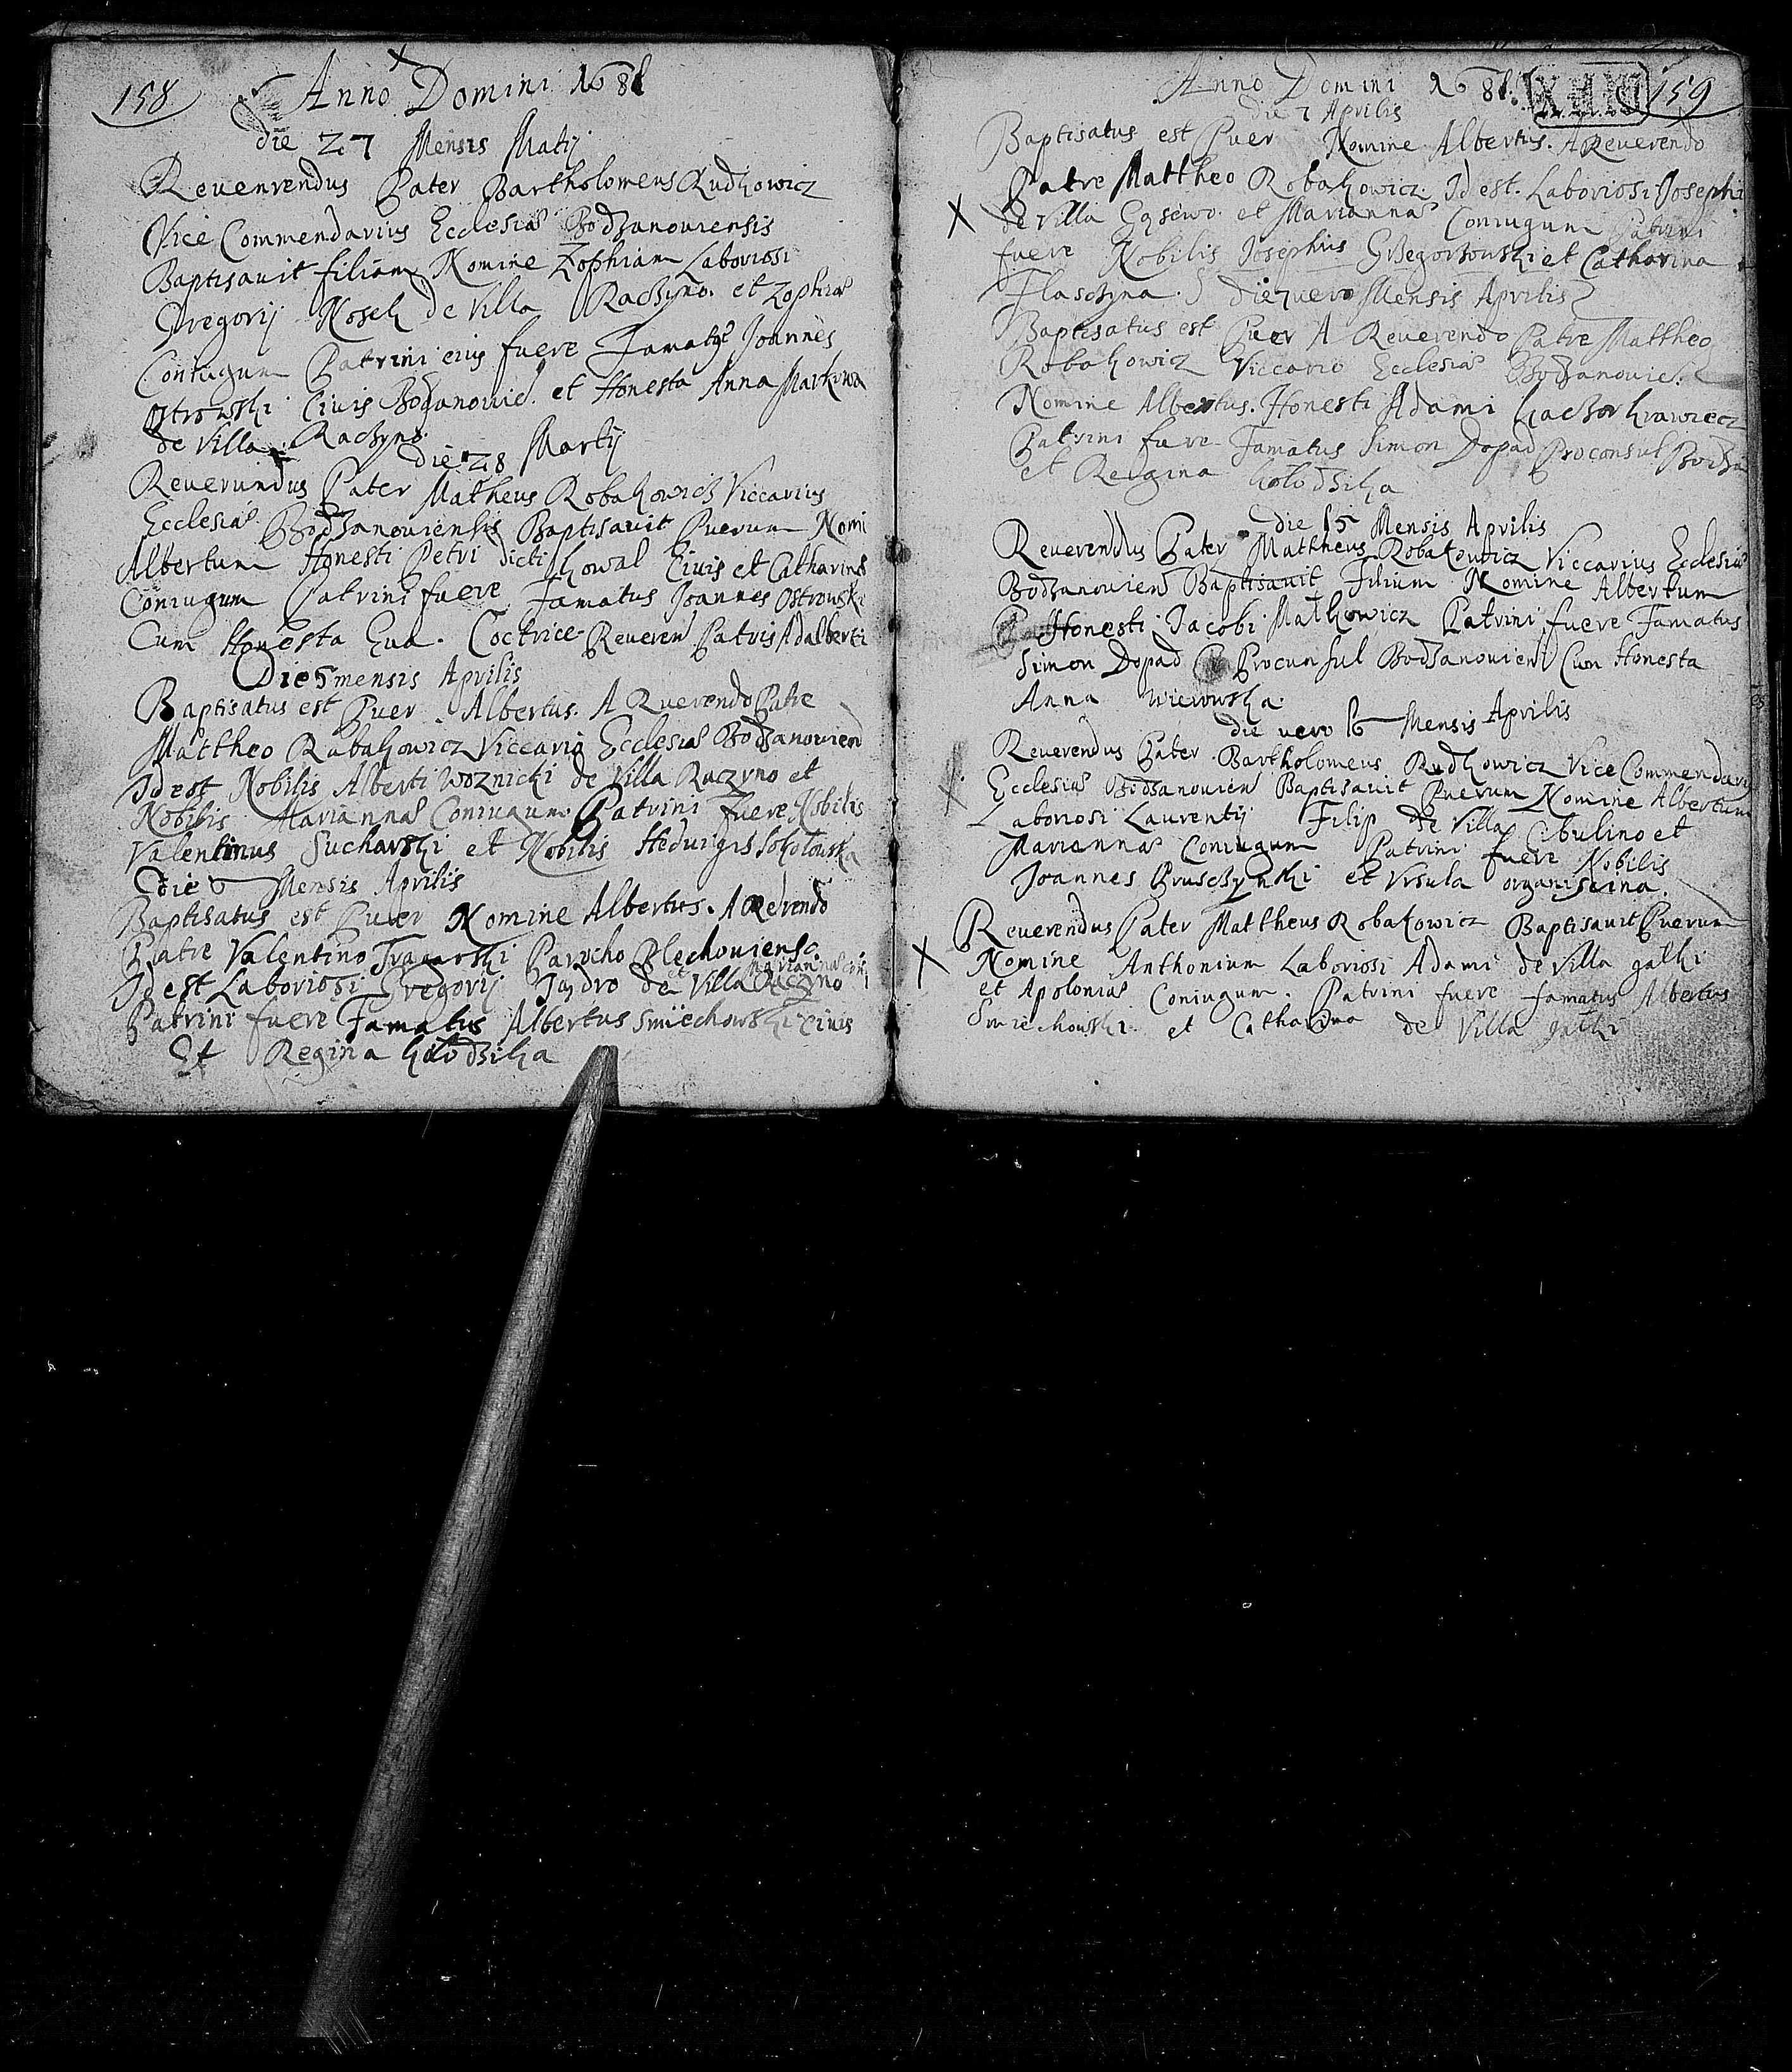 158
Anno Domini 1681
die 27 Mensis Matij
Revenrendus Pater Bartholomeus Rudkowicz
Vice Commendarius Ecclesiæ Bodzanouiensis
Baptisauit filiam Nomine Zophiam Laboriosi
Gregorij Nosek de Villa Raczyno. et Zophiæ
Coniugum Patrini eius fuere Famatus Joannes
Ostrowski Ciuis Bodzanouien. et Honesta Anna Markowa
de Villa Raczyno.
die 28 Martij
Reuerundus Pater Matheus Robakowicz Viccarius
Ecclesiæ Bodzanouiensis Baptisauit Puerum Nomi
Albertum Honesti Petri dicti Kowal Ciuis et Catharinæ
Coniugum Patrini fuere Famatus Joannes Ostrowski
Cum Honesta Eua. Coctrice Reueren Patris Adalberti
Die 5 mensis Aprilis
Baptisatus est Puer Albertus. A Ruerendo Patre
Mattheo Rabakowicz Viccario Ecclesiæ Bodzanouien
Id est Nobilis Alberti Woznicki de Villa Raczyno et
Nobilis Mariannæ Coniugum Patrini fuere Nobilis
Valentinus Sucharski et Nobilis Heduigis Sokołouska
die 6 Mensis Aprilis
Baptisatus est Puer Nomine Albertus. A Redrendo
Patre Valentino Parocho Blechouiense.
et Mariannæ
Id est Laboriosi Gregorij de Villa Raczyno
Patrini fuere Famatus Albertus Smiechowski ciuis
Et Regina Kołodzika
Anno Domini 1681.
159
die 7 Aprilis
Baptisatus est Puer Nomine Albertus. A Reuerendo
Patre Mattheo Robakowicz. Id est. Laboriosi Josephi
de Villa Gąsewo. et Mariannæ Coniugum Patrini
fuere Nobilis Josephus Grzegorzowski et Catharina
Flaszczyna. die 7 uero Mensis Aprilis
Baptisatus est Puer A Reuerendo Patre Mattheo
Robakowicz Viccario Ecclesiæ Bodzanouie.
Nomine Albertus. Honesti Adami Kaczor Krawiecz
Patrini fuere Famatus Simon Dopad Proconsul Bodza
et Reigina Kołodzika
die 15 Mensis Aprilis
Reuerendus Pater Mattheus Robakowicz Viccarius Ecclesiæ
Bodzanouien Baptisauit Filium Nomine Albertum
Honesti Jacobi Małkowicz Patrini fuere Famatus
Simon Dopad Procunsul Bodzanouien Cum Honesta
Anna
die uero 16 Mensis Aprilis
Reuerendus Pater Bartholomeus Rudkowicz Vice Commendari
Ecclesiæ Bodzanouien Baptisauit Puerum Nomine Albertum
Laboriosi Laurentij Filip de Villa Cibulino et
Mariannæ Coniugum Patrini fuere Nobilis
Joannes Pruszczynski et Vrsula organiscina.
Reuerendus Pater Mattheus Robakowicz Baptisauit Puerum
Nomine Anthonium Laboriosi Adami de Villa gałki
et Apoloniæ Coniugum. Patrini fuere famatus Albertus
Smiechouski. et Catharina de Villa gałki